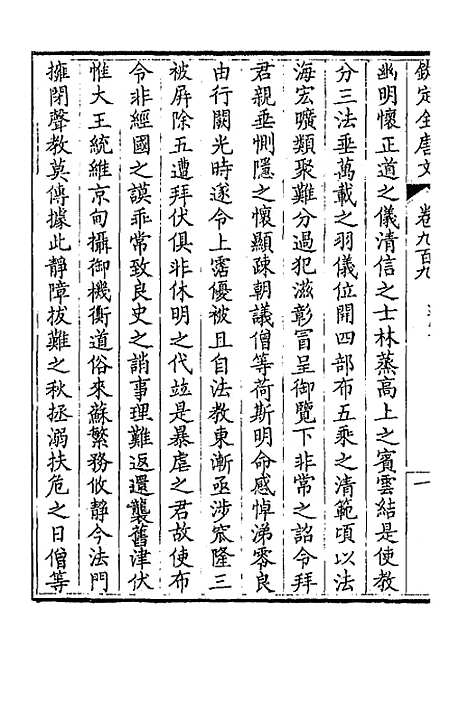 欽定全唐文
卷九百九
一
幽明懷正道之儀清信之士林蒸高上之賓雲結是使教
分三法垂萬載之羽儀位開四部布五乘之清範頃以法
海宏曠類聚難分過犯滋彰冒呈御覽下非常之詔令拜
君親垂惻隱之懷顯疎朝議僧等荷斯明命感悼涕零良
由行闕光時遂令上霑優被且自法教東漸亟涉窊隆三
被屏除五遭拜伏俱非休明之代竝是暴虐之君故使布
令非經國之謨乖常致良史之誚事理難返還襲舊津伏
惟大王統維京甸攝御機衡道俗來蘇繁務攸靜今法門
擁閉聲教莫傳據此靜障拔難之秋拯溺扶危之日僧等